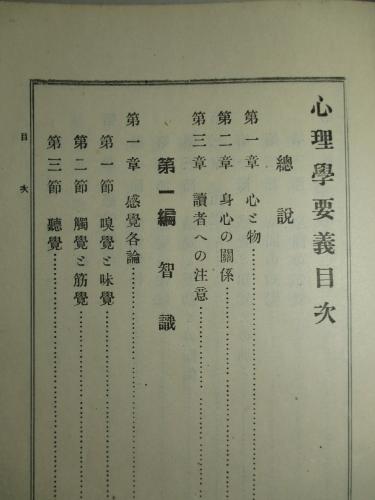 心理學要義目次
總説
第一章 心と物
第二章 身心の關係
第三章 讀者への注意
第一編 智識
第一章 感覺各論
第一節 嗅覺と味覺
第二節 觸覺と筋覺
第三節 聽覺
目次